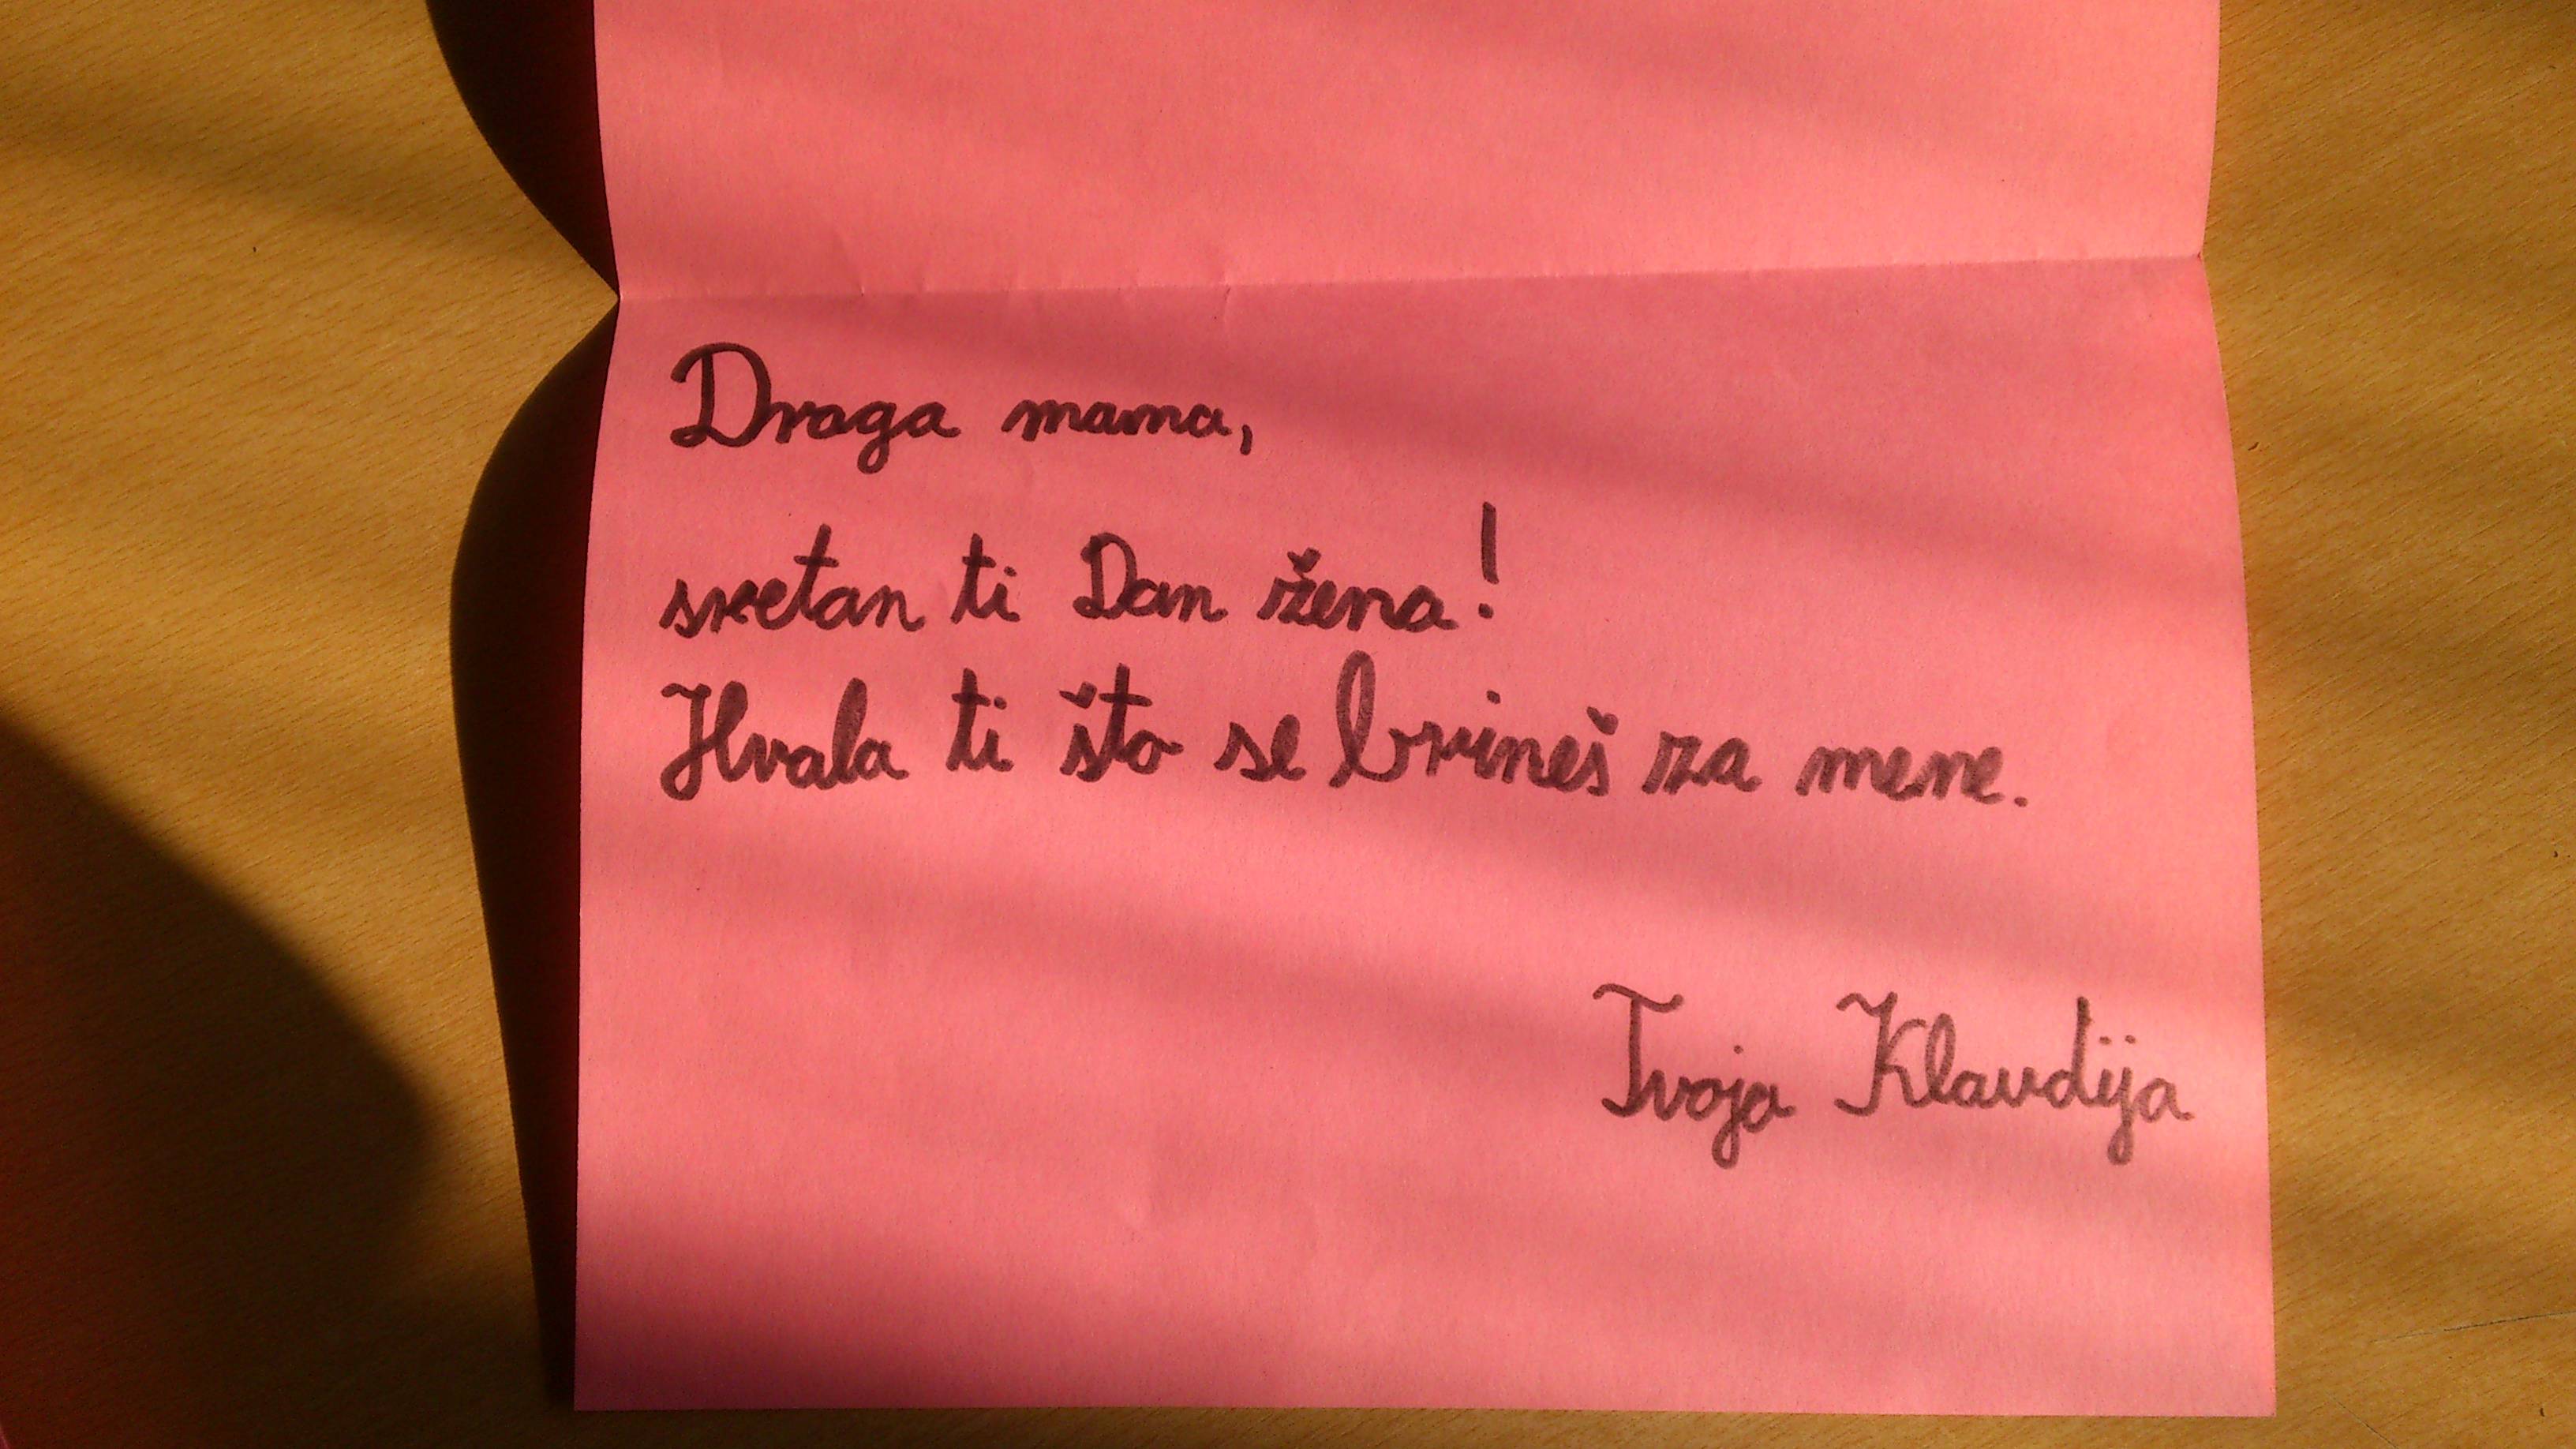 Draga mama,
sretan ti Dan žena!
Hvala ti što se brineš za mene.
Tvoja Klaudija